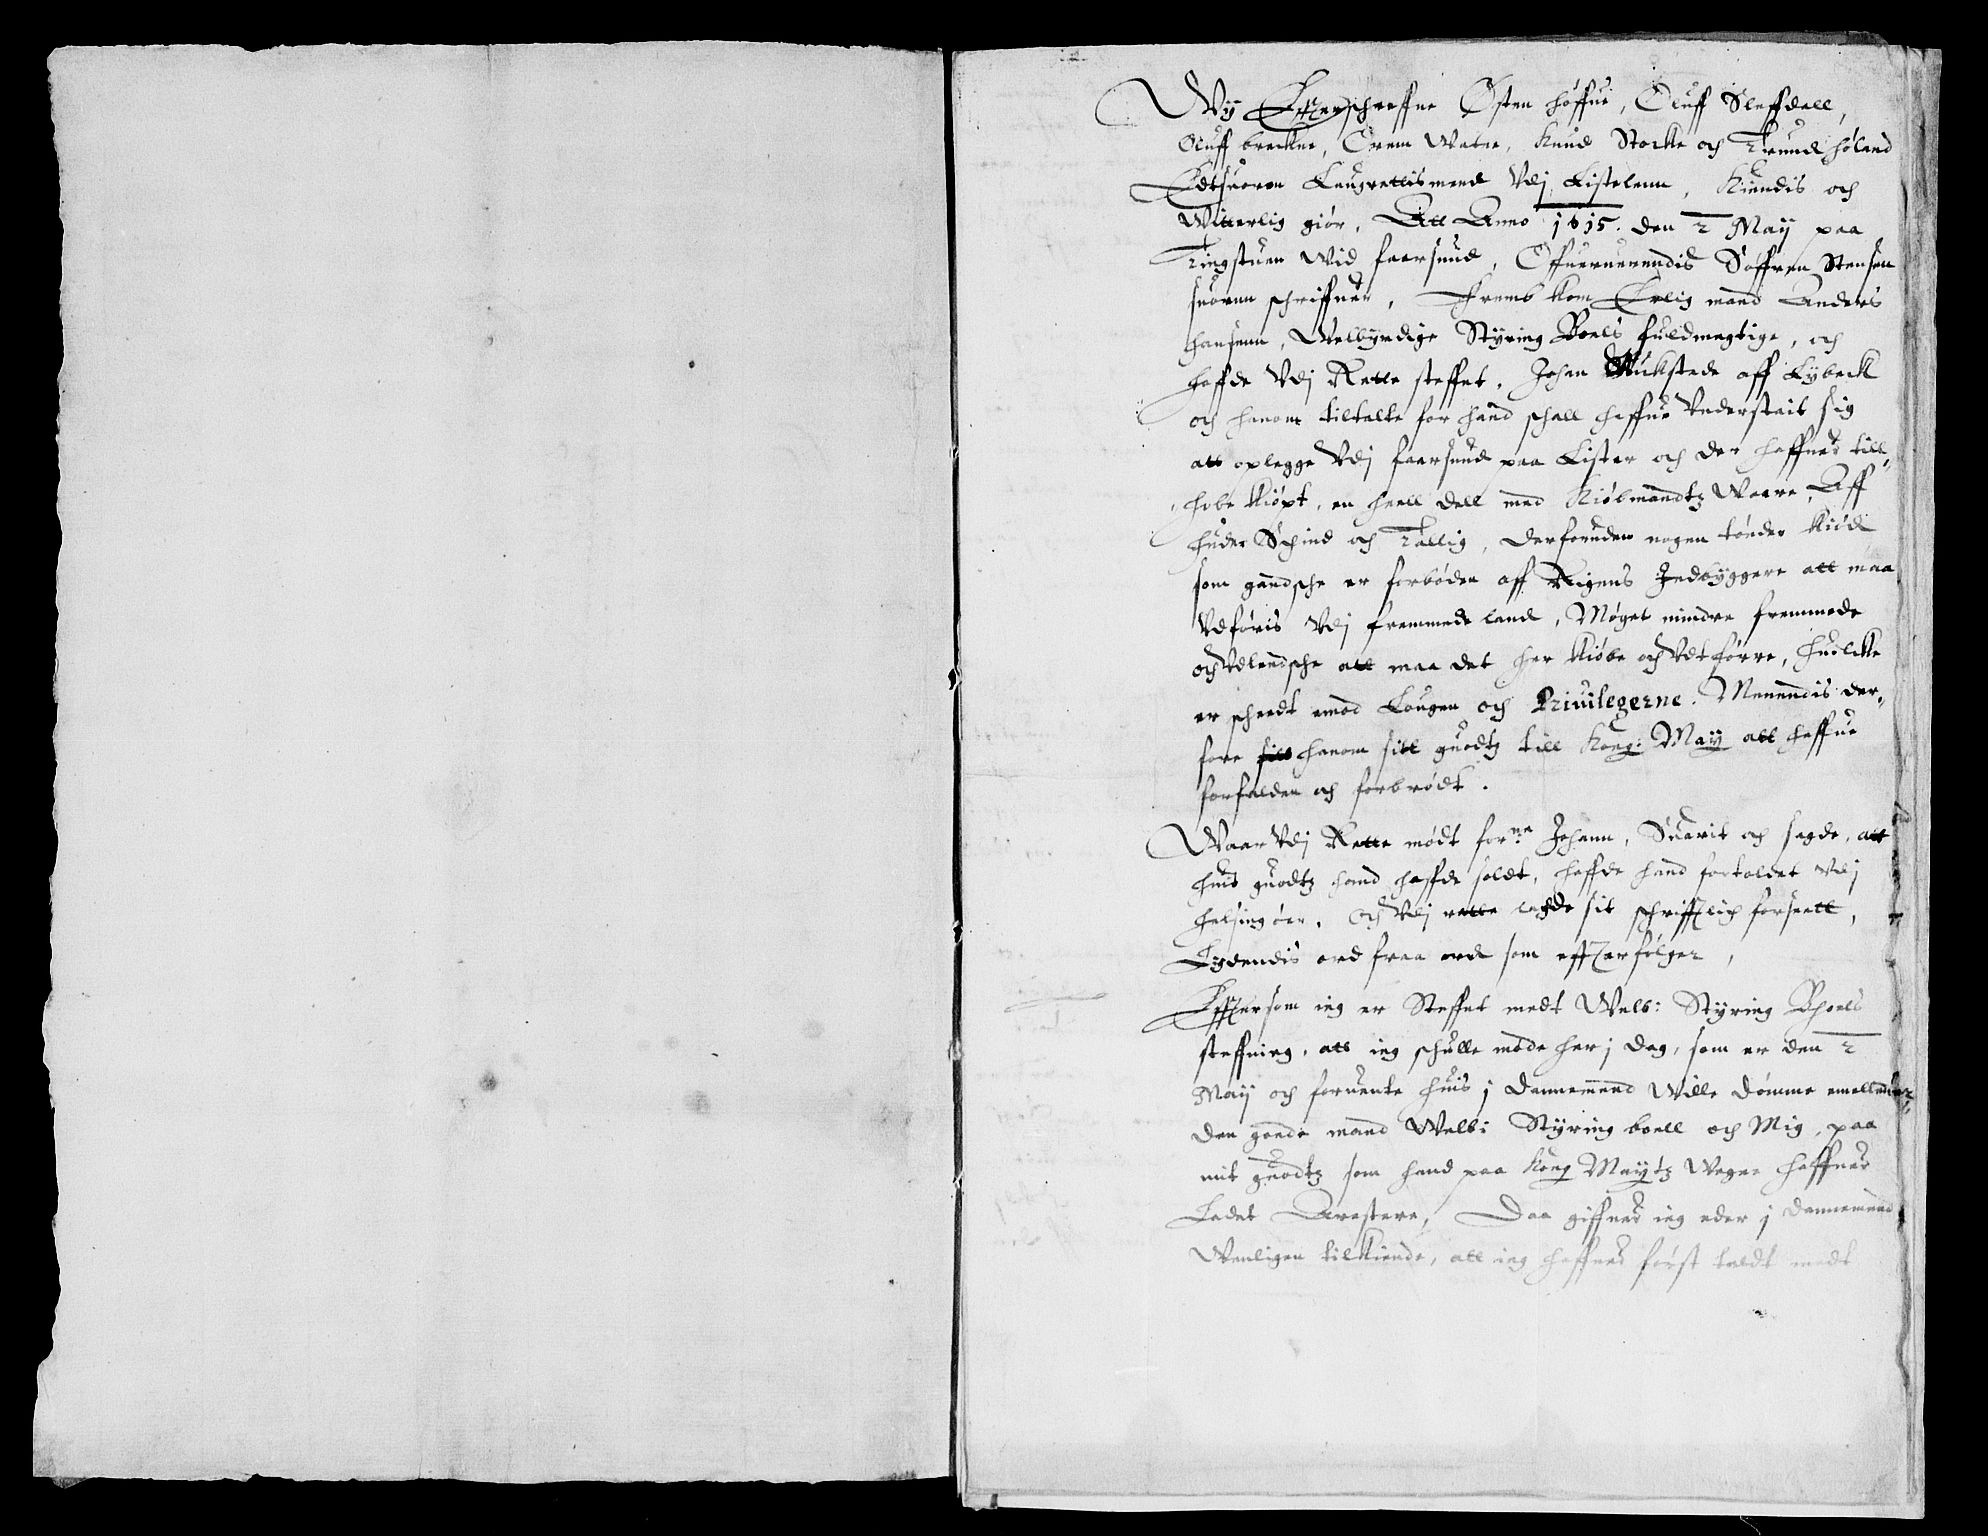 Wy Effterschreffne Østen høffue, Oluff Sleffdall,
Oluff breckne, Erem Watne, Knud Stocke och Trund høland
Edtsuoren Laugrettismend Vdj Listelenn, Kiendis och
Witterlig giør, Att Anno 1615. den 2 May paa
Tingstuen Wid faarsund, Offueruerendis Søffren Stensen
suoren schriffuer, Fremb kom Erlig mand Anders
hansenn, Welbyrdige Styring Boels fuldmegtige, och
haffde Vdj Rette steffnt, Johan Wickstede aff Lybeck
och hanom tiltalte for hand schall haffue Vnderstait sig
att oplegge Vdj faarsund paa Lister och der haffuer till„
hobe kiøpt, en heell dell med Kiøbmandtz Waare, Aff
huder Schind och Tallig, derforuden nogen tønder kiød
som gandsche er forbøden aff Rigens Indbyggere att maa
Vdføris Vdj fremmede land, Møget mindre fremmede
och Vdlendsche att maa det her kiøbe och Vdtførre, huilcke
er scheedt emod Lougen och Priuilegerne. Menendis der„
fore hanom sitt guodtz till Kong: May att haffue
forfalden och forbrødt.
Waar Vdj Rette mødt forne Johann, Suarit och sagde, att
huis guodtz hand haffde soldt, haffde hand fortoldet Vdj
helsingøer, Och Vdj rette lagde sit schrifftlich forsætt,
Lydendis ord fraa ord som effterfølger,
Effttersom ieg er Steffnet medt Welb: Styring Bhoels
steffning, att ieg schulle møde her j dag, som er den 2
May och foruente huis j dannemend Wille dømme emellom
den goede mand Welb: Styring boell och Mig, paa
mit guodtz som hand paa Kong Maytz Wegne haffuer
Ladet Arestere, Daa giffuer ieg eder j dannemend
Wenligen tilkiende, att ieg haffuer først taldt medt